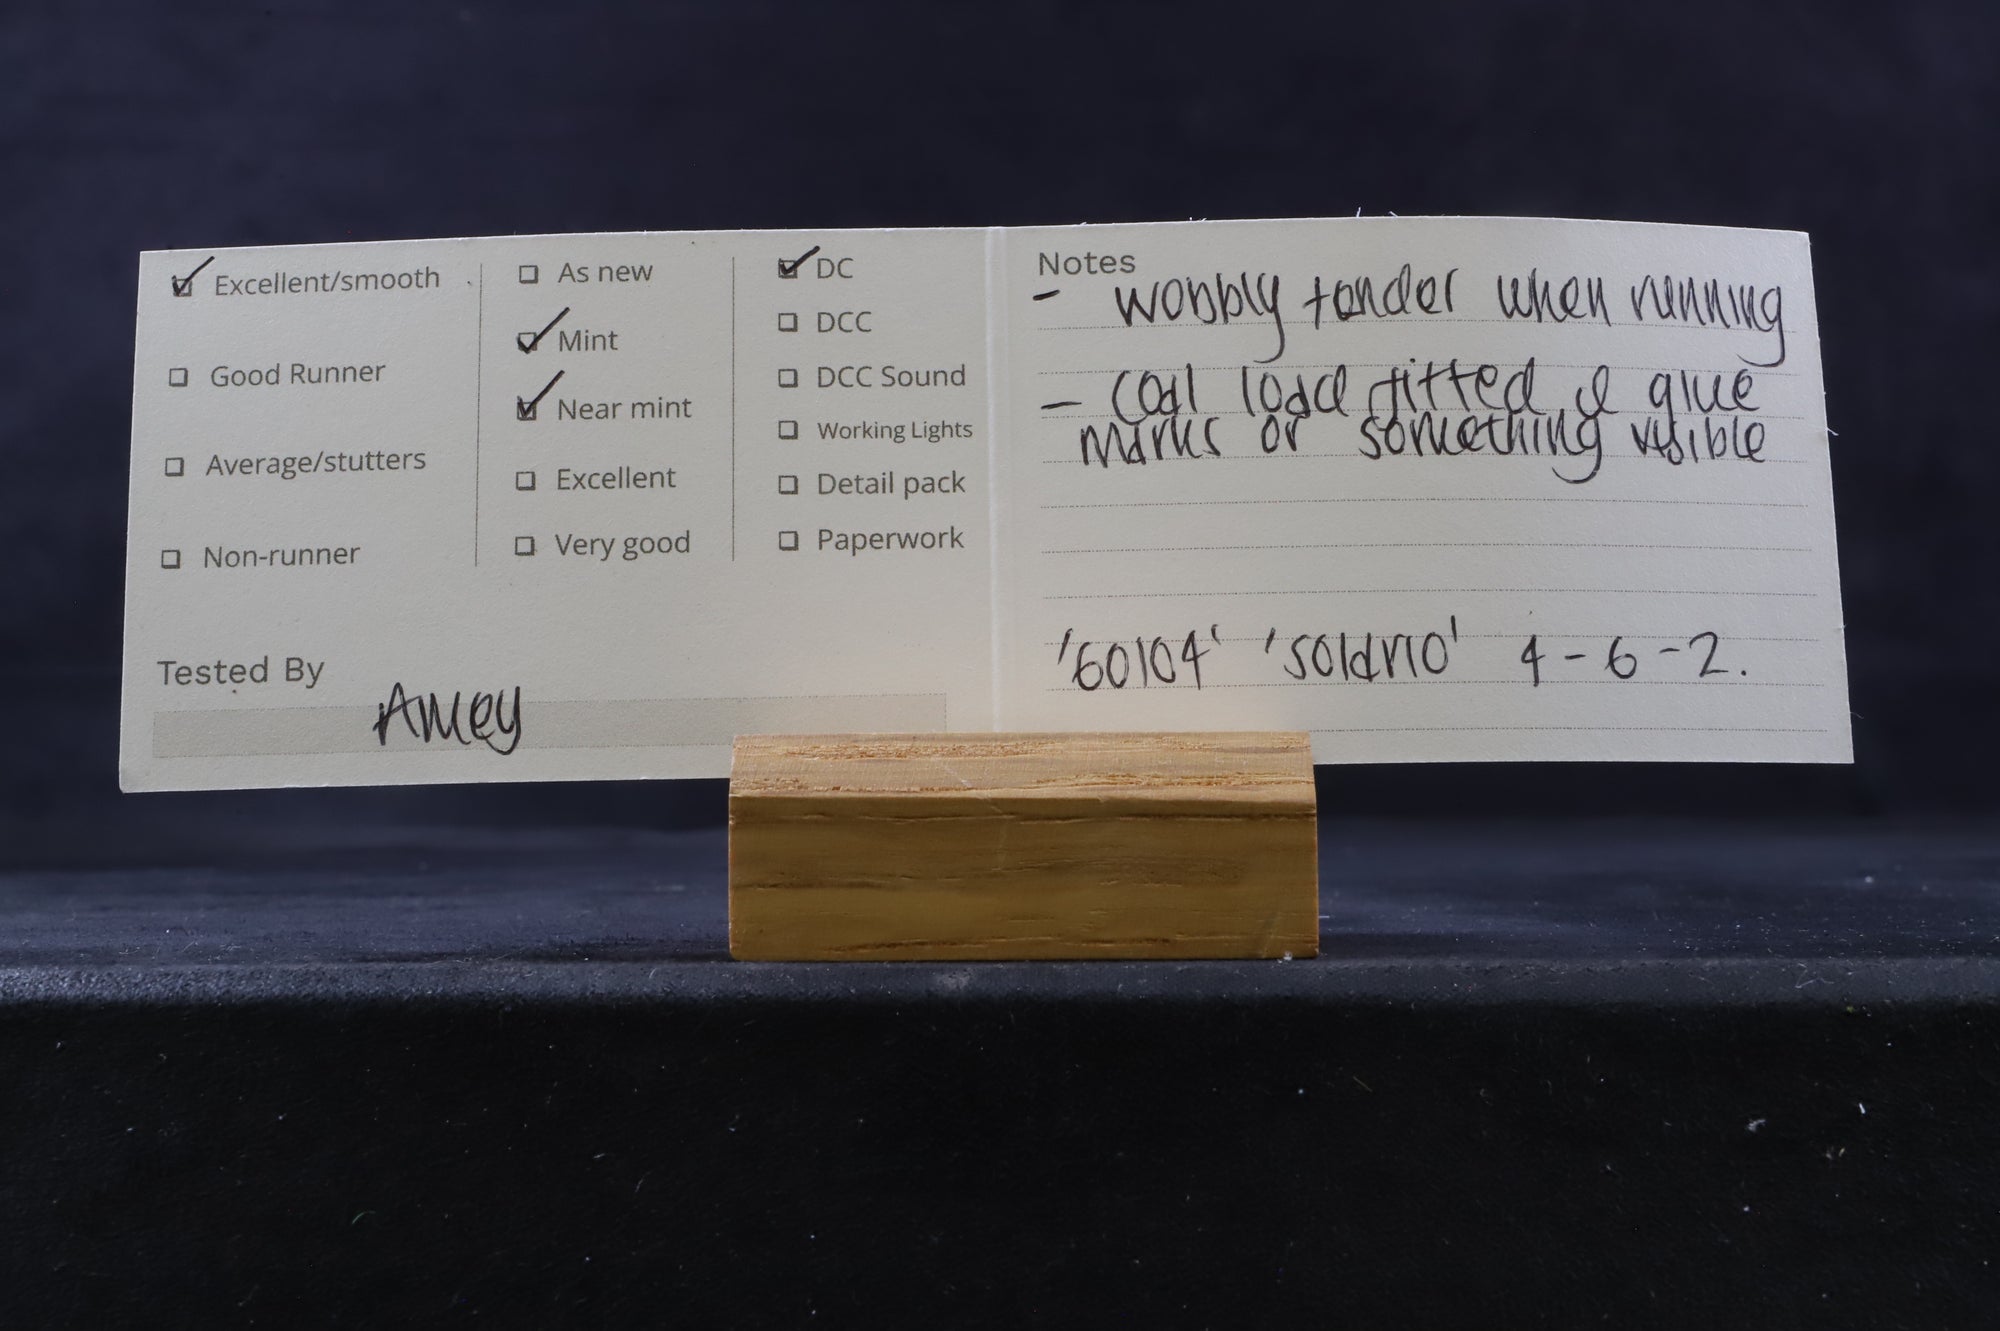 Excellent/smooth
Good Runner
Average/stutters
Non-runner
As new
Mint
Near mint
Excellent
Very good
DC
DCC
DCC Sound
Working Lights
Detail pack
Paperwork
Tested By
Amey
Notes
- wobbly tender when running
- coal load fitted & glue
marks or something visible
'60104' 'solario' 4-6-2.